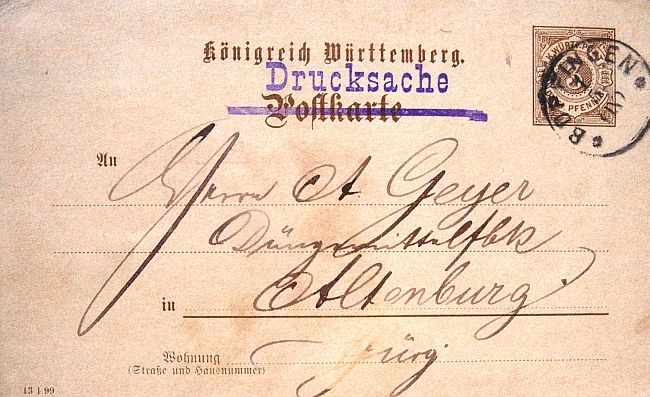 Königreich Württemberg.
Drucksache
Postkarte
K. WÜRTT. POST
PFENNIG
BOPFINGEN
An
Herrn A. Geyer
Düngemittelfbk
in Altenburg
Wohnung
(Straße und Hausnummer)
13 1 99